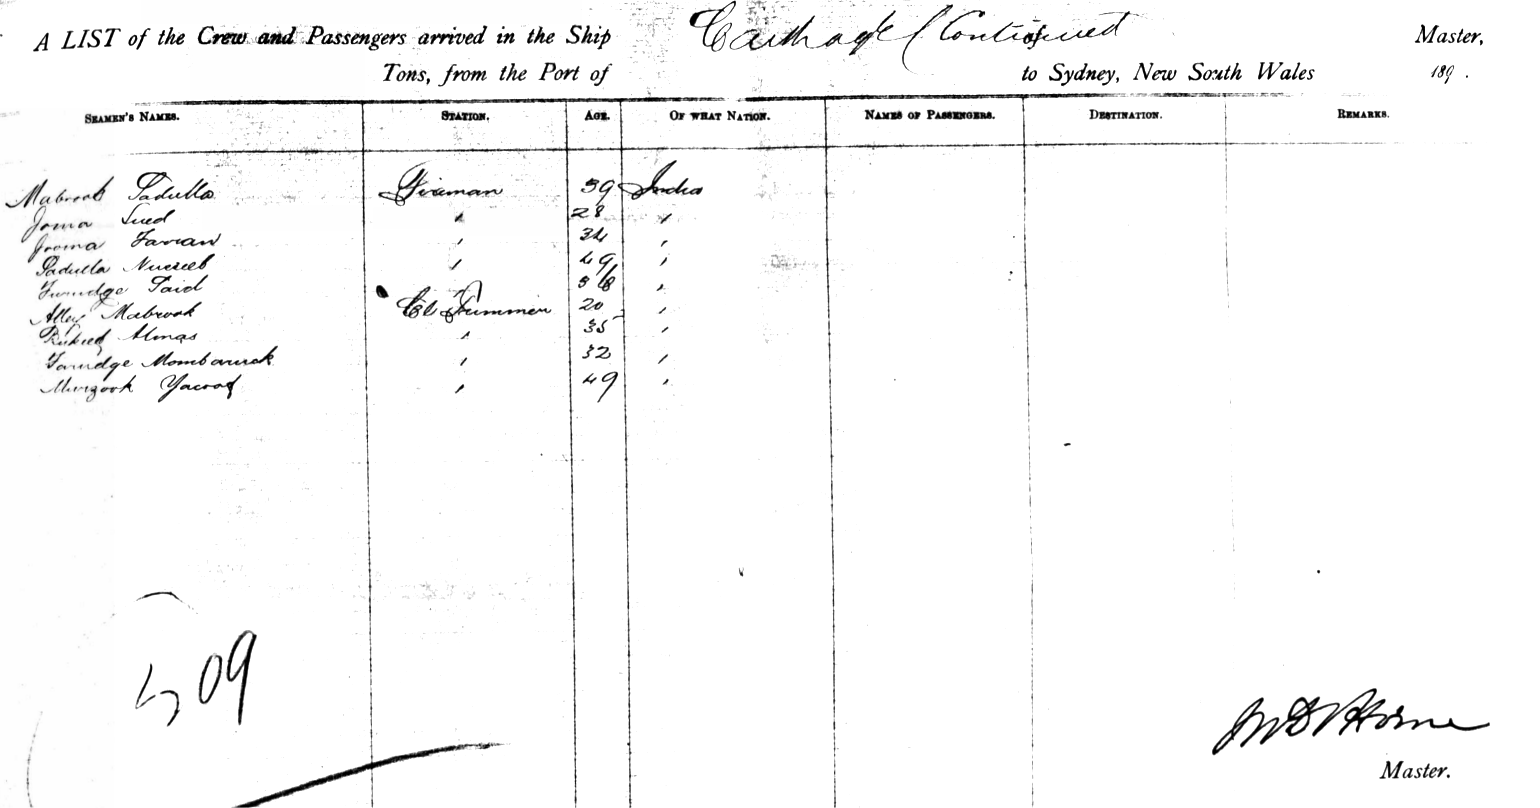 A LIST of the Crew and Passengers arrived in the Ship Carthage (Continued of Master,
Tons, from the Port of to Sydney, New South Wales 189 .
SEAMEN'S NAMES. STATION. AGE. OF WHAT NATION. NAMES OF PASSENGERS. DESTINATION. REMARKS.
Mabrook Sadulla Fireman 39 India
Joma 28 "
Jooma Farran " 34 "
Sadulla " 49 "
Said " "
Alley Mabrook Cl Trimmer 20 "
Almas " 35 "
Farudge Mombaruck " 32 "
Murzook Yacoof " 49 "
509
Horne
Master.